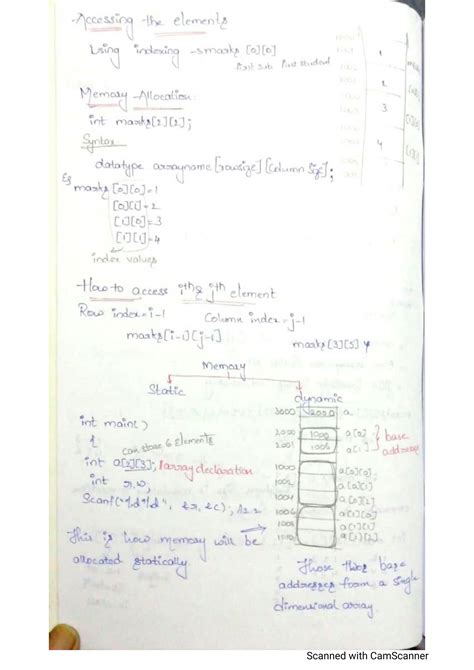 Accessing the elements
Using indexing → marks [0][0]
first sub first student
1
2
3
4
Memory Allocation
int marks[2][2];
Syntax
datatype arrayname [rowsize] [column size];
Eg marks [0][0]=1
[0][1]=2
[1][0]=3
[1][1]=4
index values
How to access ith & jth element
Row index=i-1 Column index=j-1
marks[i-1][j-1] marks[3][5]
Memory
Static dynamic
3000 2000 a
int main()
{ can store 6 elements
2000 1000 a[0]
2001 1006 a[1] } base addresses
int a[2][3]; //array declaration
int r,c;
Scanf("%d%d", &r,&c);
1000 a[0][0]
1002 a[0][1]
1004 a[0][2]
1006 a[1][0]
1008 a[1][1]
1010 a[1][2]
This is how memory will be
allocated statically
Those two base
addresses form a single
dimensional array
Scanned with CamScanner